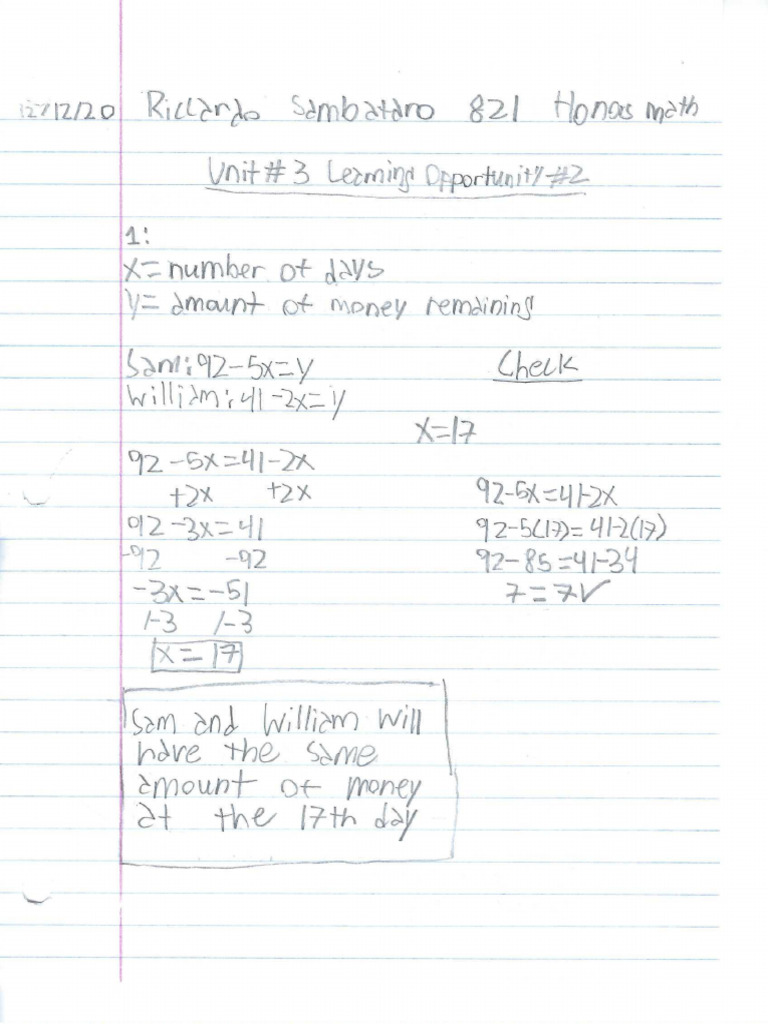 12/12/20 Riccardo Sambataro 821 Honors math
Unit #3 Learning Opportunity #2
1:
x = number of days
y = amount of money remaining
Sam: 92 - 5x = y
Check
William: 41 - 2x = y
x = 17
92 - 5x = 41 - 2x
+2x +2x
92 - 5x = 41 - 2x
92 - 3x = 41
92 - 5(17) = 41 - 2(17)
-92 -92
92 - 85 = 41 - 34
-3x = -51
7 = 7 ✓
/-3 /-3
x = 17
Sam and William will
have the same
amount of money
at the 17th day